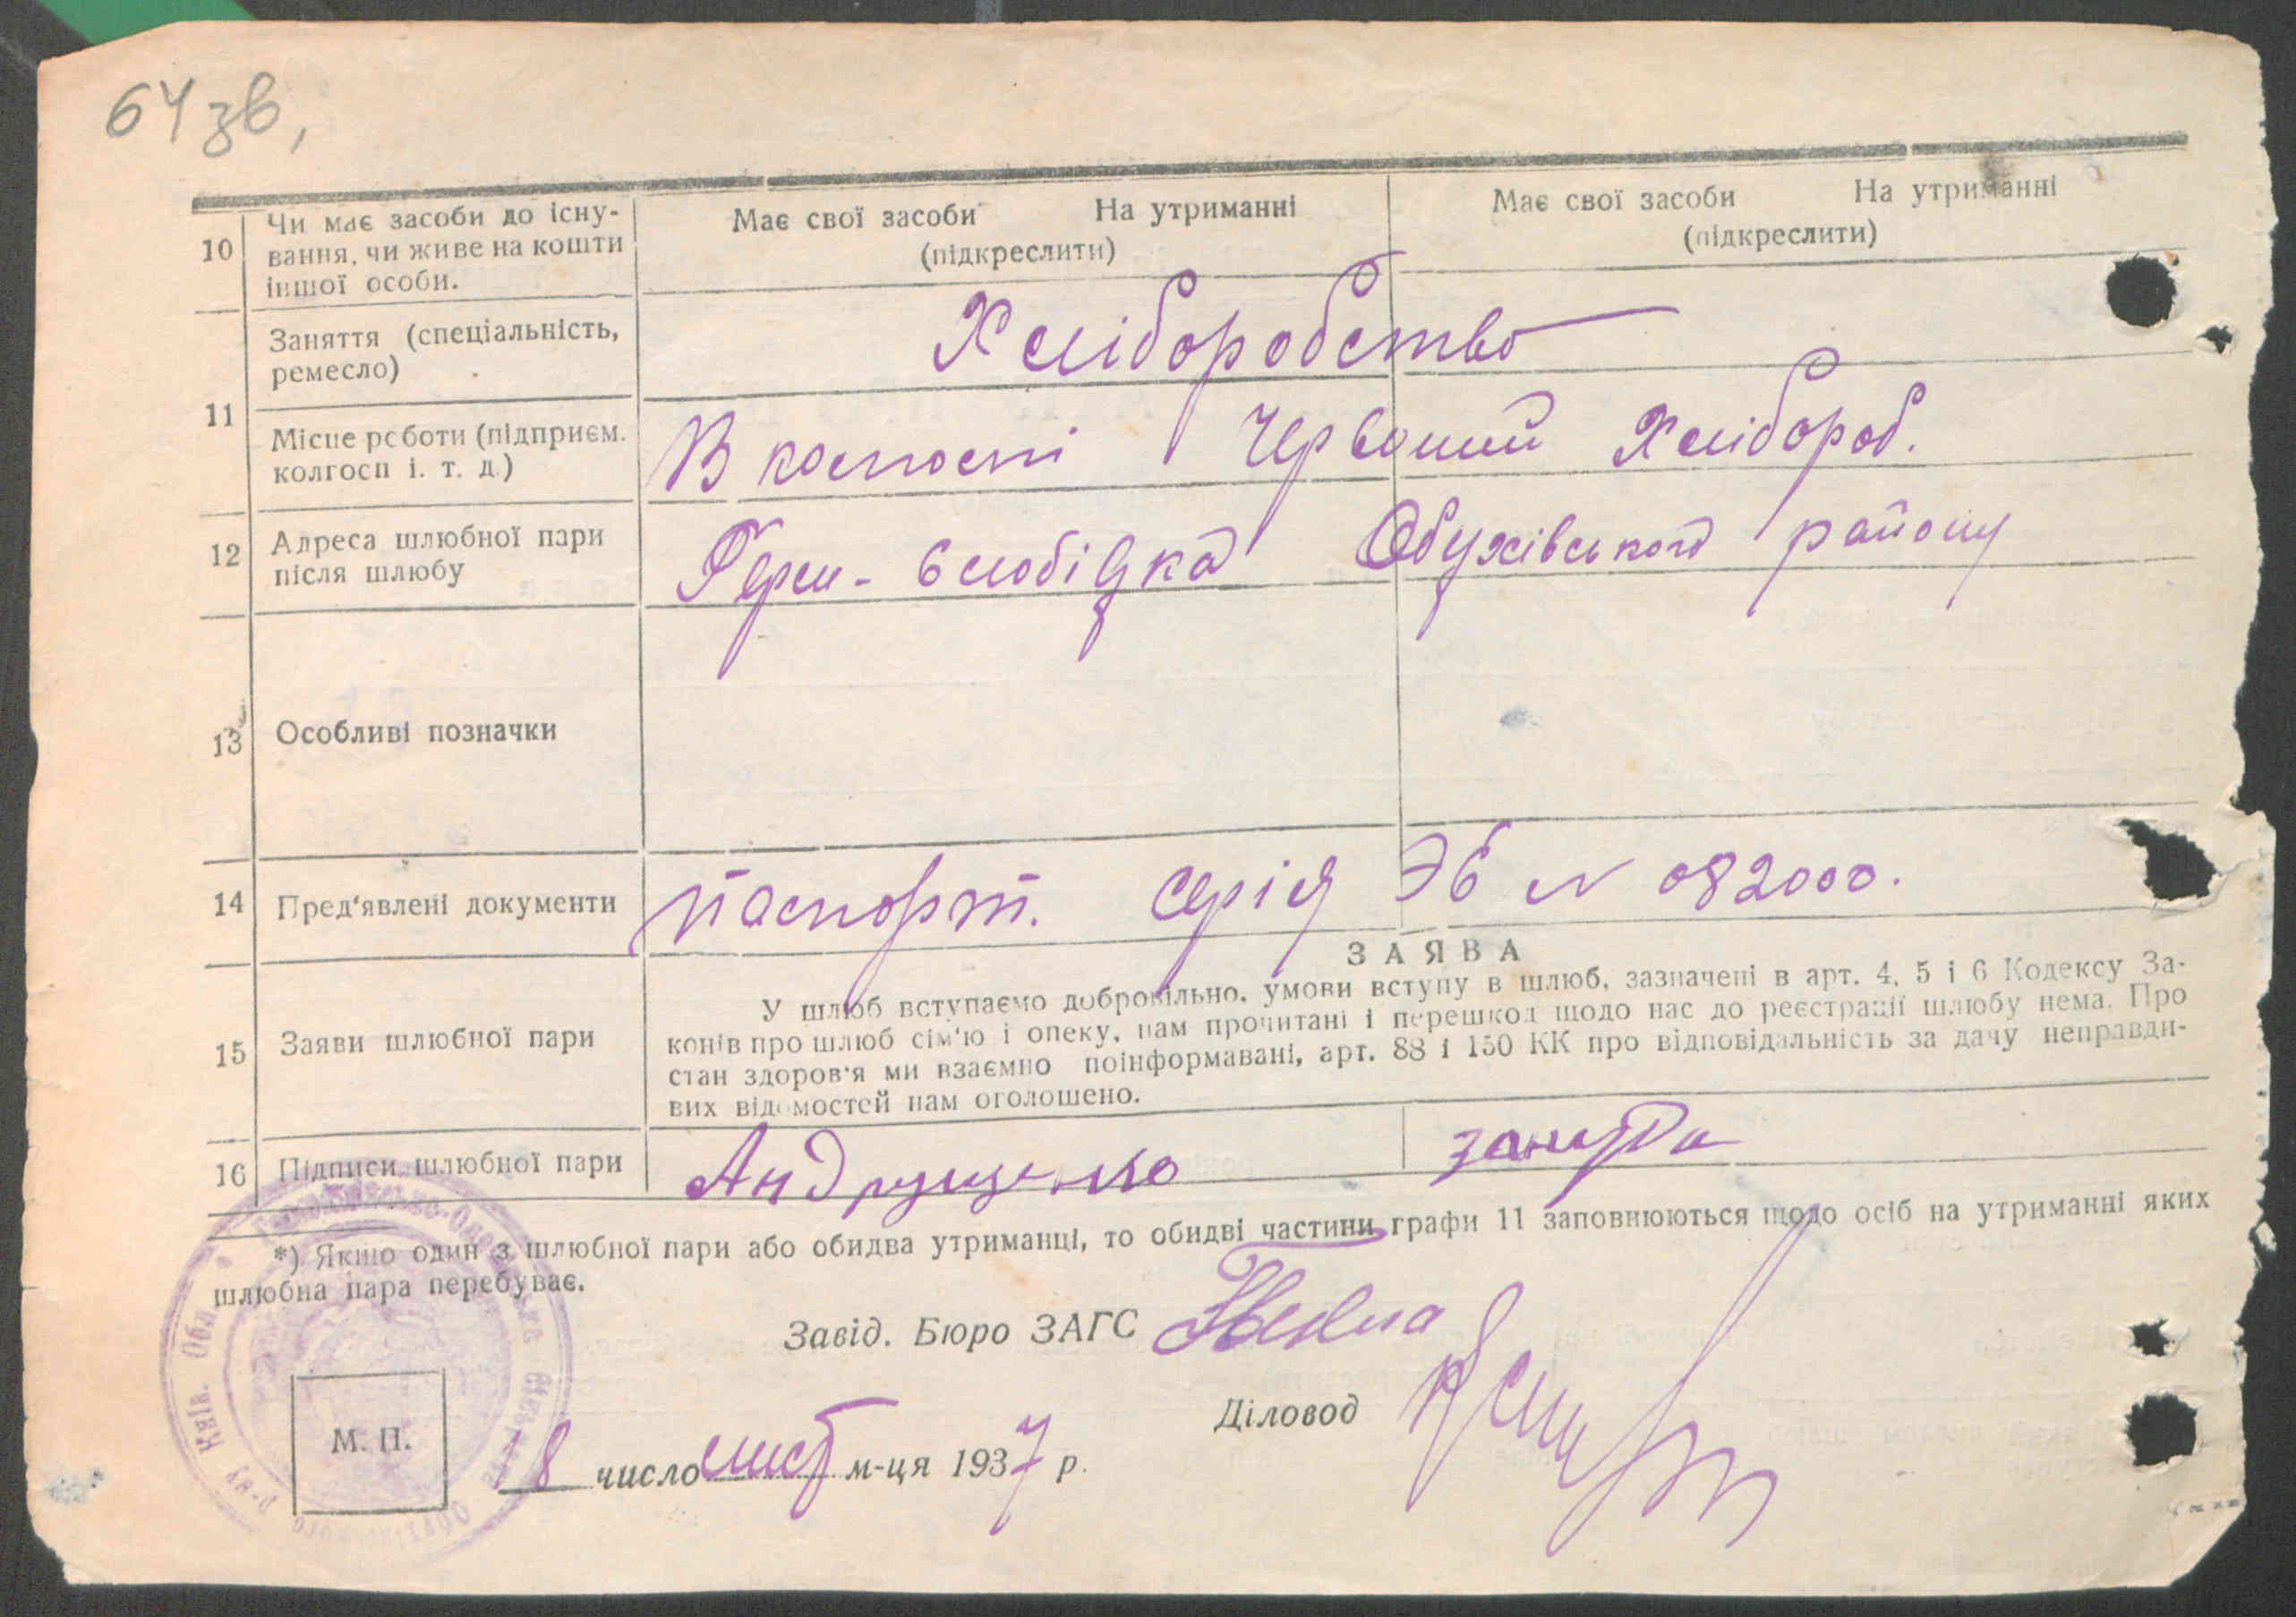 64 зв,
10 Чи має засоби до існу-
вання, чи живе на кошти
іншої особи.
Має свої засоби На утриманні
(підкреслити)
Має свої засоби На утриманні
(підкреслити)
11 Заняття (спеціальність,
ремесло)
Хліборобство
Місце роботи (підприєм.
колгосп і. т. д.)
В колгоспі Червоний Хлібороб.
12 Адреса шлюбної пари
після шлюбу
Герм-Слобідка Обухівського району
13 Особливі позначки
14 Пред'явлені документи
паспорт. серія ЭБ № 082000.
ЗАЯВА
15 Заяви шлюбної пари
У шлюб вступаємо добровільно, умови вступу в шлюб, зазначені в арт. 4, 5 і 6 Кодексу За-
конів про шлюб сім'ю і опеку, нам прочитані і перешкод щодо нас до реєстрації шлюбу нема. Про
стан здоров'я ми взаємно поінформавані, арт. 88 і 150 КК про відповідальність за дачу неправди-
вих відомостей нам оголошено.
16 Підписи шлюбної пари
Андрущенко
*) Якшо один з шлюбної пари або обидва утриманці, то обидві частини графи 11 заповнюються щодо осіб на утриманні яких
шлюбна пара перебуває.
Завід. Бюро ЗАГС
Діловод
М. П.
18 число лист м-ця 1937 р.
Київ. Обл.